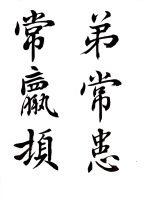 弟常患
常羸頓